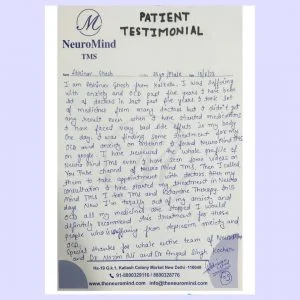 PATIENT
TESTIMONIAL
M
NeuroMind
TMS
I am Abhinav Ghosh from Kolkata. I was suffering
with anxiety and OCD past five years I have seen
lot of doctors in last and five years I took lot
of medicines from many doctors but I didn't get
any result even when I have started medications
I have faced very bad side effects in my body
One day, I was finding some treatment for my
OCD and anxiety on internet I found NeuroMind TMS
on google. I have reviewed the whole profile of
Neuro Mind TMS even I have seen some videos on
You Tube channel of Neuro Mind TMS. Then I called
them to take appointment with doctors after my
consultation I have started my treatment in Neuro
Mind TMS I took TMS and Ketamine Therapy
days Now I'm totally out of my anxiety and
OCD all my medicines were stopped I would
definitely recommend this treatment for those
people who is suffering from depression, anxiety and
OCD.
Special thanks for whole entire team of
and Dr. Nazim Ali and Dr. Angad Singh Kochar
Hs-19 G.K-1, Kailash Colony Market New Delhi -110048
91-8800329116 / 8800328776
www.theneuromind.com / info@theneuromind.com